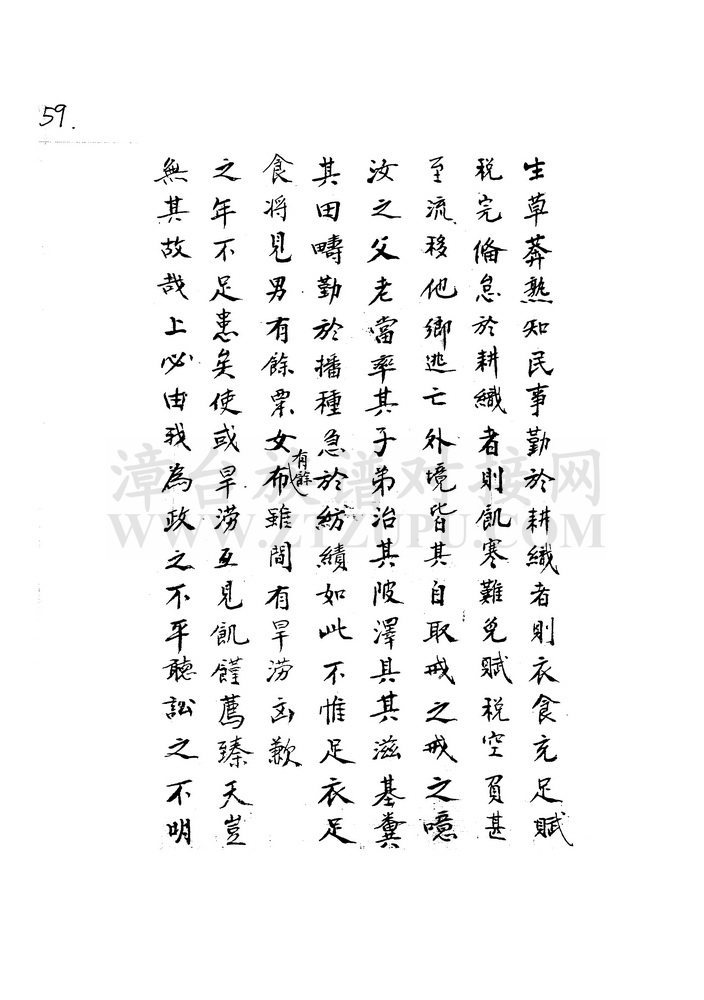 59.
生草莽熟知民事勤於耕織者則衣食充足賦
税完俻怠於耕織者則飢寒難免賦税空負甚
至流移他鄉逃亡外境皆其自取戒之戒之噫
汝之父老當率其子弟治其陂澤具其滋基糞
其田疇勤於播種急於紡績如此不惟足衣足
食将見男有餘粟女有餘布雖間有旱涝凶歉
之年不足患矣使或旱涝互見飢饉薦臻天豈
無其故哉上必由我為政之不平聽訟之不明
漳台族谱对接网
WWW.ZTZUPU.COM